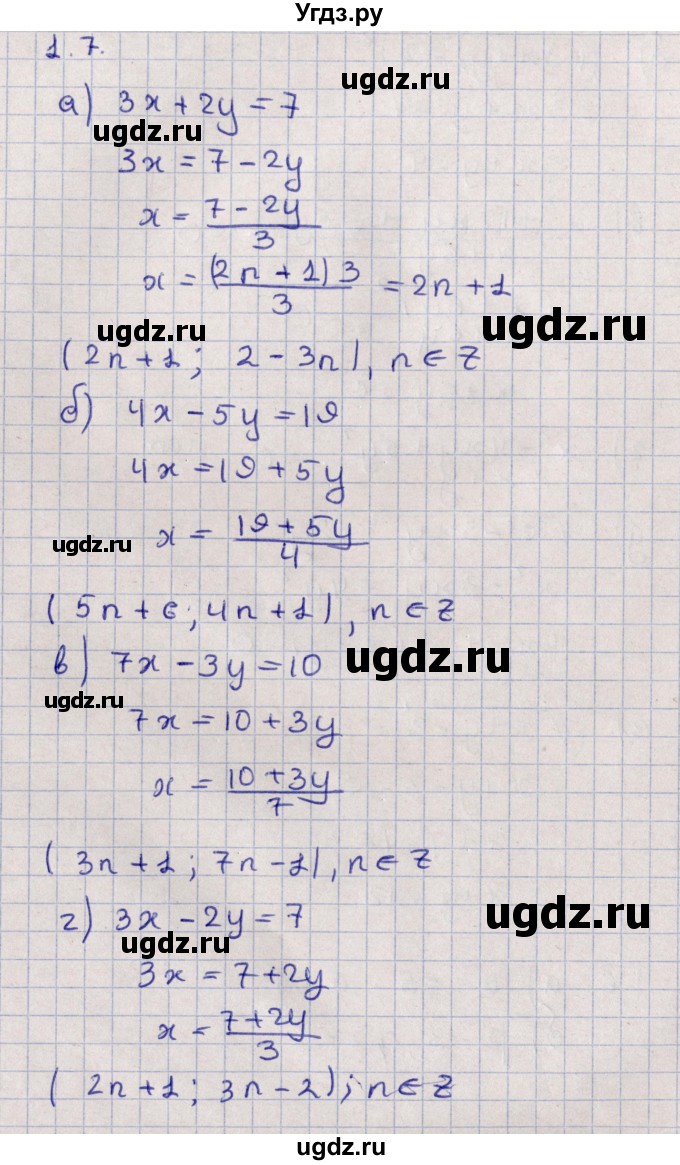 Угдз.ру
1.7.
ugdz.ru
а) 3x + 2y = 7
ugdz.ru
3x = 7 - 2y
x = \frac{7 - 2y}{3}
x = \frac{(2n + 1) 3}{3} = 2n + 1
ugdz.ru
ugdz.ru
(2n + 1; 2 - 3n), n ∈ Z
б) 4x - 5y = 19
4x = 19 + 5y
x = \frac{19 + 5y}{4}
ugdz.ru
(5n + 6; 4n + 1), n ∈ Z
в) 7x - 3y = 10
ugdz.ru
ugdz.ru
7x = 10 + 3y
x = \frac{10 + 3y}{7}
(3n + 1; 7n - 1), n ∈ Z
г) 3x - 2y = 7
ugdz.ru
ugdz.ru
3x = 7 + 2y
x = \frac{7 + 2y}{3}
(2n + 1; 3n - 2); n ∈ Z
ugdz.ru